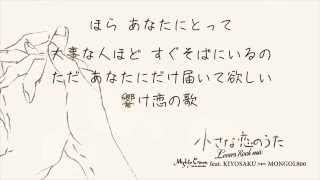 ほら あなたにとって
大事な人ほど すぐそばにいるの
ただ あなたにだけ届いて欲しい
響け恋の歌
小さな恋のうた
Lovers Rock mix
Mighty Crown feat. KIYOSAKU from MONGOL800